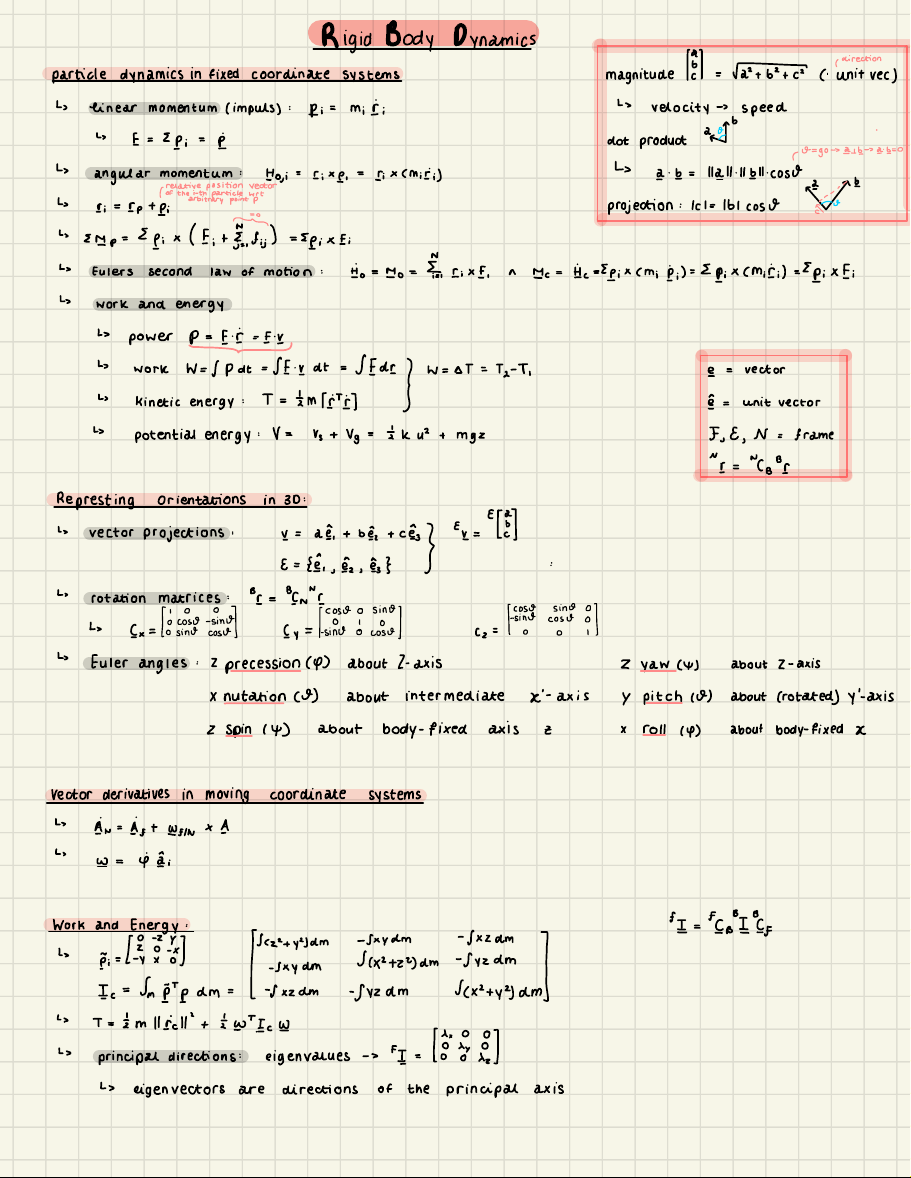 Rigid Body Dynamics
particle dynamics in fixed coordinate systems
↳ linear momentum (impuls) : p̲ᵢ = mᵢ ṙ̲ᵢ
↳ F̲ = Σ p̲ᵢ = ṗ̲
↳ angular momentum : H̲₀,ᵢ = r̲ᵢ × p̲ᵢ = r̲ᵢ × (mᵢ ṙ̲ᵢ)
relative position vector
of the i-th particle wrt
arbitrary point P
↳ r̲ᵢ = r̲ₚ + ρ̲ᵢ
=0
↳ Σ M̲ₚ = Σ ρ̲ᵢ × ( F̲ᵢ + Σᴺⱼ₌₁ f̲ᵢⱼ ) = Σ ρ̲ᵢ × F̲ᵢ
↳ Eulers second law of motion : Ḣ̲₀ = M̲₀ = Σᴺᵢ₌₁ r̲ᵢ × F̲ᵢ ∧ M̲c = Ḣ̲c = Σ ρ̲ᵢ × (mᵢ ρ̲̈ᵢ) = Σ ρ̲ᵢ × (mᵢ r̲̈ᵢ) = Σ ρ̲ᵢ × F̲ᵢ
↳ work and energy
↳ power P = F̲ · ṙ̲ = F̲ · v̲
↳ work W = ∫ P dt = ∫ F̲ · v̲ dt = ∫ F̲ dr̲ } W = ΔT = T₂ - T₁
↳ kinetic energy : T = ½ m [ṙ̲ᵀ ṙ̲]
↳ potential energy : V = Vs + Vg = ½ k u² + mgz
direction
magnitude [a b c] = √(a² + b² + c²) (· unit vec)
↳ velocity → speed
dot product a ϑ b
ϑ=90 → a̲ ⊥ b̲ → a̲·b̲=0
↳ a̲ · b̲ = ||a̲|| · ||b̲|| · cosϑ
projection : |c| = |b| cosϑ a c ϑ b
e̲ = vector
ê̲ = unit vector
F, E, N = frame
ᴺr̲ = ᴺC̲_B ᴮr̲
Represting Orientations in 3D:
↳ vector projections : v̲ = aê̲₁ + bê̲₂ + cê̲₃ } ᴱv̲ = ᴱ[a b c]
E = {ê̲₁, ê̲₂, ê̲₃}
↳ rotation matrices: ᴮr̲ = ᴮC̲_N ᴺr̲
↳ C̲x = [1 0 0; 0 cosϑ -sinϑ; 0 sinϑ cosϑ] C̲y = [cosϑ 0 sinϑ; 0 1 0; -sinϑ 0 cosϑ] C̲z = [cosϑ sinϑ 0; -sinϑ cosϑ 0; 0 0 1]
↳ Euler angles : z precession (φ) about Z-axis Z yaw (ψ) about Z-axis
x nutation (ϑ) about intermediate x'-axis y pitch (ϑ) about (rotated) y'-axis
z spin (ψ) about body-fixed axis z x roll (φ) about body-fixed x
Vector derivatives in moving coordinate systems
↳ Ȧ̲_N = Ȧ̲_f + ω̲_f/N × A̲
↳ ω̲ = φ̇ â̲ᵢ
Work and Energy:
↳ ρ̲̃ᵢ = [0 -z y; z 0 -x; -y x 0]
I̲c = ∫ₘ ρ̲̃ᵀ ρ̲ dm = [∫(z²+y²)dm -∫xy dm -∫xz dm; -∫xy dm ∫(x²+z²)dm -∫yz dm; -∫xz dm -∫yz dm ∫(x²+y²)dm]
ᶠI̲ = ᶠC̲_B ᴮI̲ ᴮC̲_F
↳ T = ½ m ||ṙ̲c||² + ½ ω̲ᵀ I̲c ω̲
↳ principal directions: eigenvalues → ᶠI̲ = [λₓ 0 0; 0 λy 0; 0 0 λz]
↳ eigenvectors are directions of the principal axis